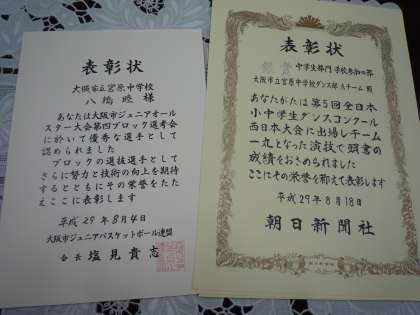 表彰状
大阪市立宮原中学校
八橋 睦 様
あなたは大阪市ジュニアオール
スター大会第四ブロック選考会
に於いて優秀な選手として
認められました
ブロックの選抜選手として
さらに努力と技術の向上を期待
するとともにその栄誉をたた
えここに表彰します
平成29年8月4日
大阪市ジュニアバスケットボール連盟
会長 塩見貴志
表彰状
銀賞 中学生部門 学校参加の部
大阪市立宮原中学校ダンス部 Aチーム 殿
あなたがたは第5回全日本
小中学生ダンスコンクール
西日本大会に出場しチーム
一丸となった演技で頭書の
成績をおさめられました
ここにその栄誉を称えて表彰します
平成29年8月18日
朝日新聞社